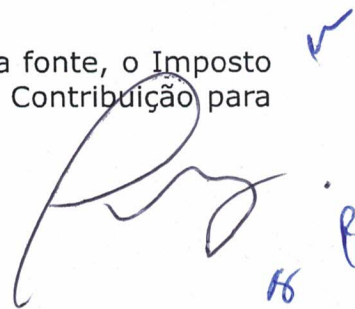 a fonte, o Imposto
Contribuição para